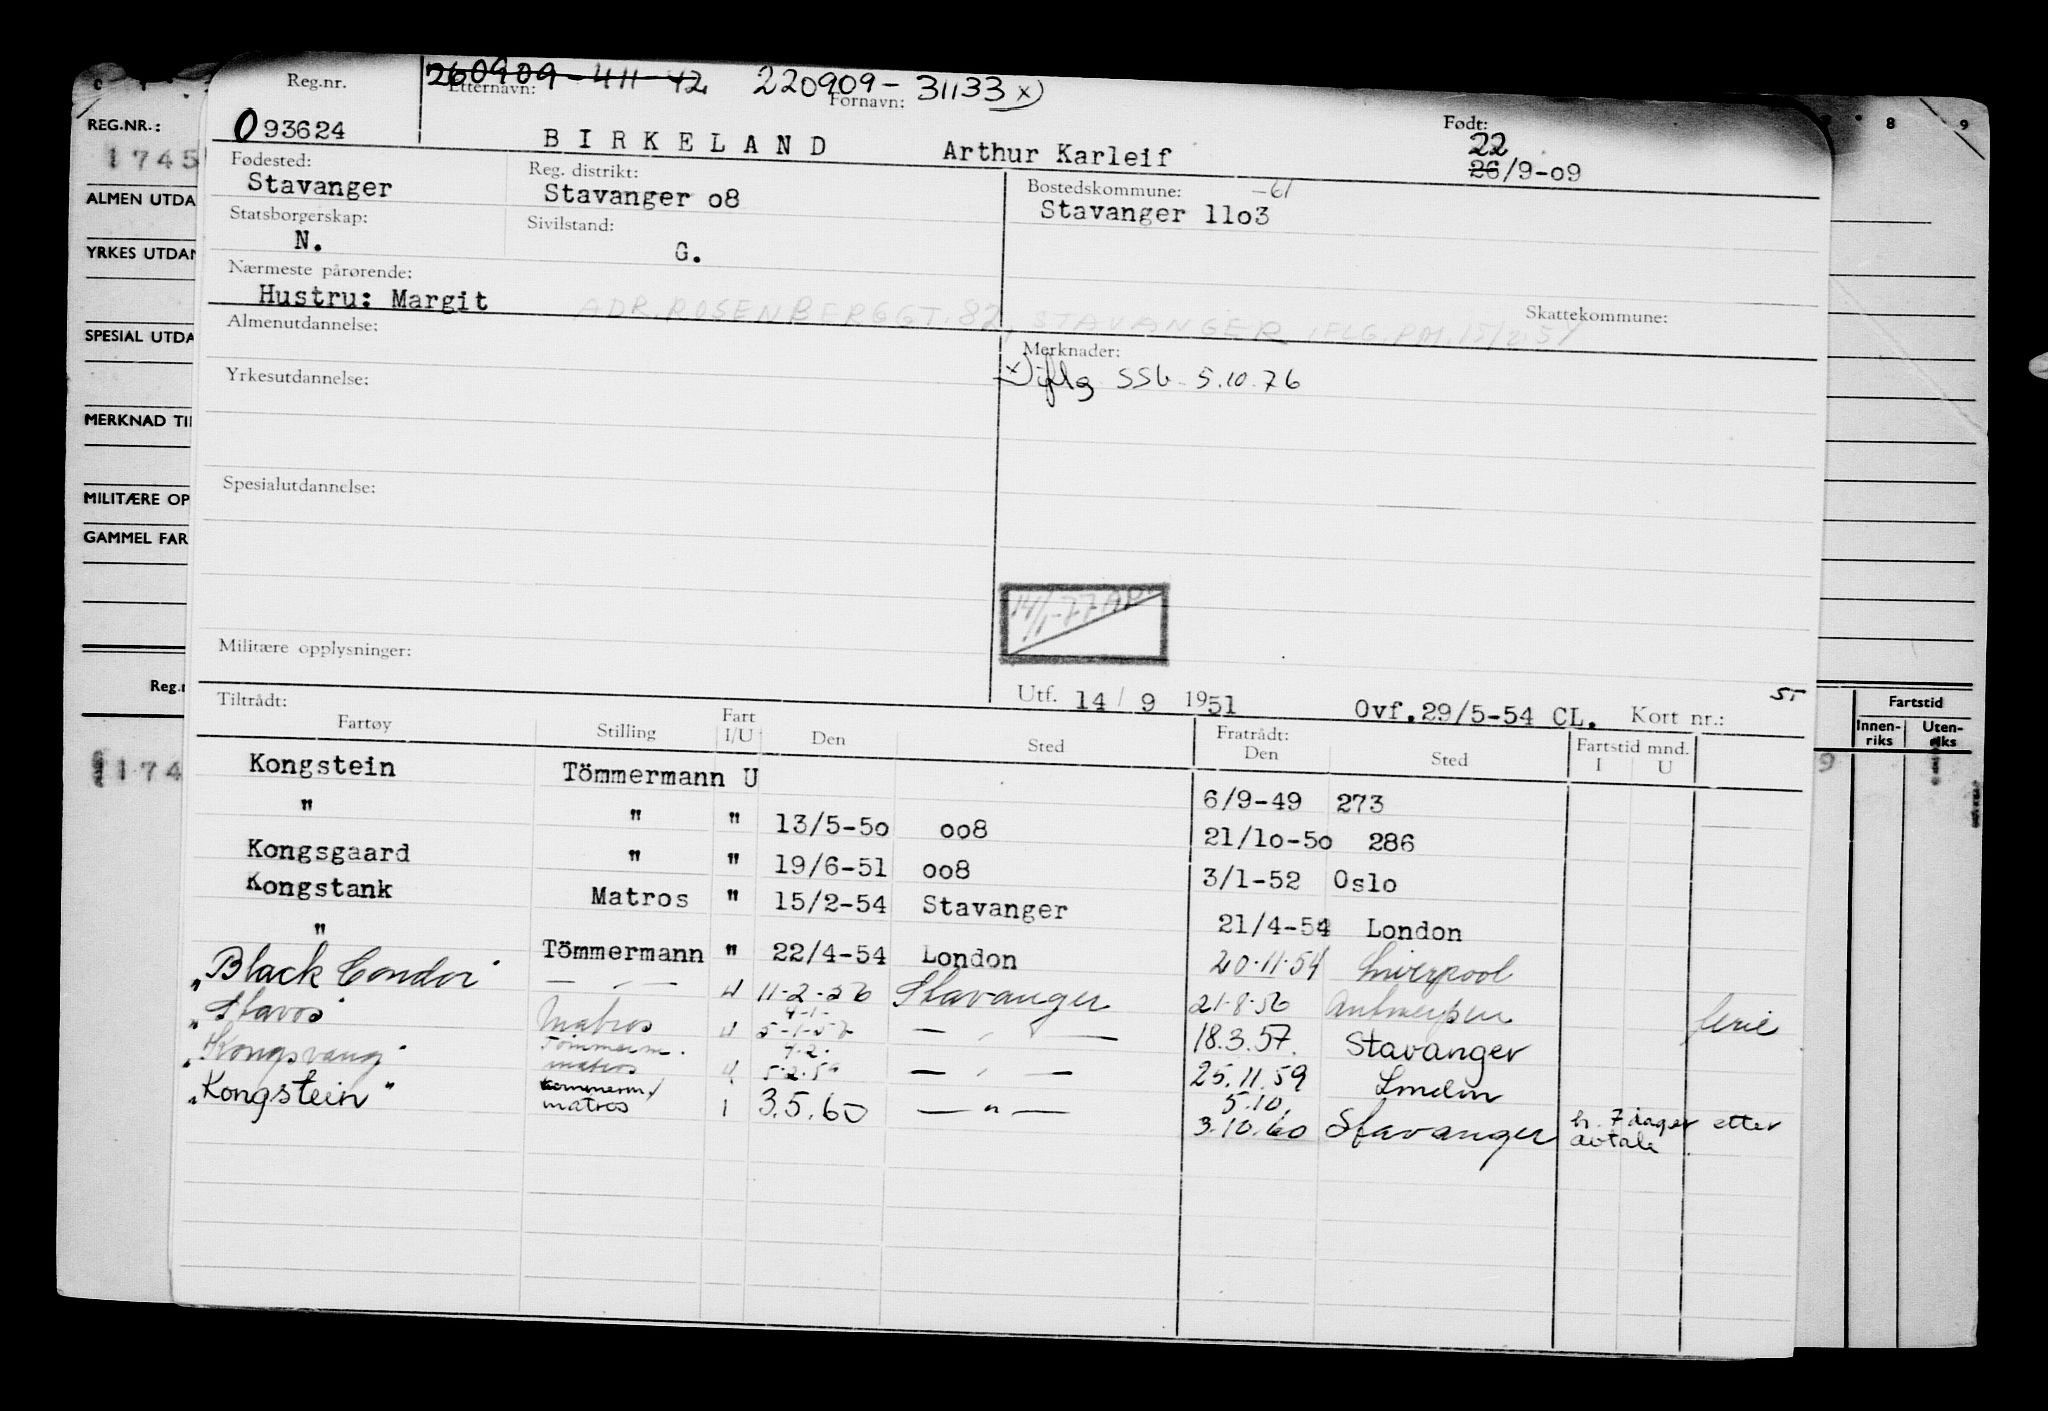 260909-411-42 220909-31133 x)
Reg.nr. Etternavn: Fornavn: Født:
093624 BIRKELAND Arthur Karleif 22
26/9-09
Fødested: Reg. distrikt: Bostedskommune: -61
Stavanger Stavanger 08 Stavanger 1103
Statsborgerskap: Sivilstand:
N. G.
Nærmeste pårørende:
Hustru: Margit ADR. ROSENBERGGT. 82, STAVANGER IFLG. PM. 15/2.54
Skattekommune:
Almenutdannelse: Merknader:
x) iflg SSB 5.10.76
Yrkesutdannelse:
Spesialutdannelse:
14/1-77
Militære opplysninger:
Utf. 14/ 9 1951 Ovf.29/5-54 CL. Kort nr.: 55
Tiltrådt: Fratrådt:
Fartøy Stilling Fart I/U Den Sted Den Sted Fartstid mnd. I U
Kongstein Tömmermann U 6/9-49 273
" " " 13/5-50 008 21/10-50 286
Kongsgaard " " 19/6-51 008 3/1-52 Oslo
Kongstank Matros " 15/2-54 Stavanger 21/4-54 London
" Tömmermann " 22/4-54 London 20.11.54 Liverpool
"Black Condor" — " — U 11-2-56 Stavanger 21.8.56 Antwerpen ferie
4-1-
"Stavos" Matros U 5-1-57 — " — 18.3.57. Stavanger
Tömmerm. 4.2.
"Kongsvang" matros U 5.2.59 — " — 25.11.59 London
Tömmerm/ 5.10.
"Kongstein" matros I 3.5.60 — " — 3.10.60 Stavanger h. 7 dager etter
avtale
REG.NR.:
1745
ALMEN UTDA
YRKES UTDAN
SPESIAL UTDA
MERKNAD TI
MILITÆRE OP
GAMMEL FAR
Reg.n
174
8 9
Fartstid
Innen-riks Uten-riks
9